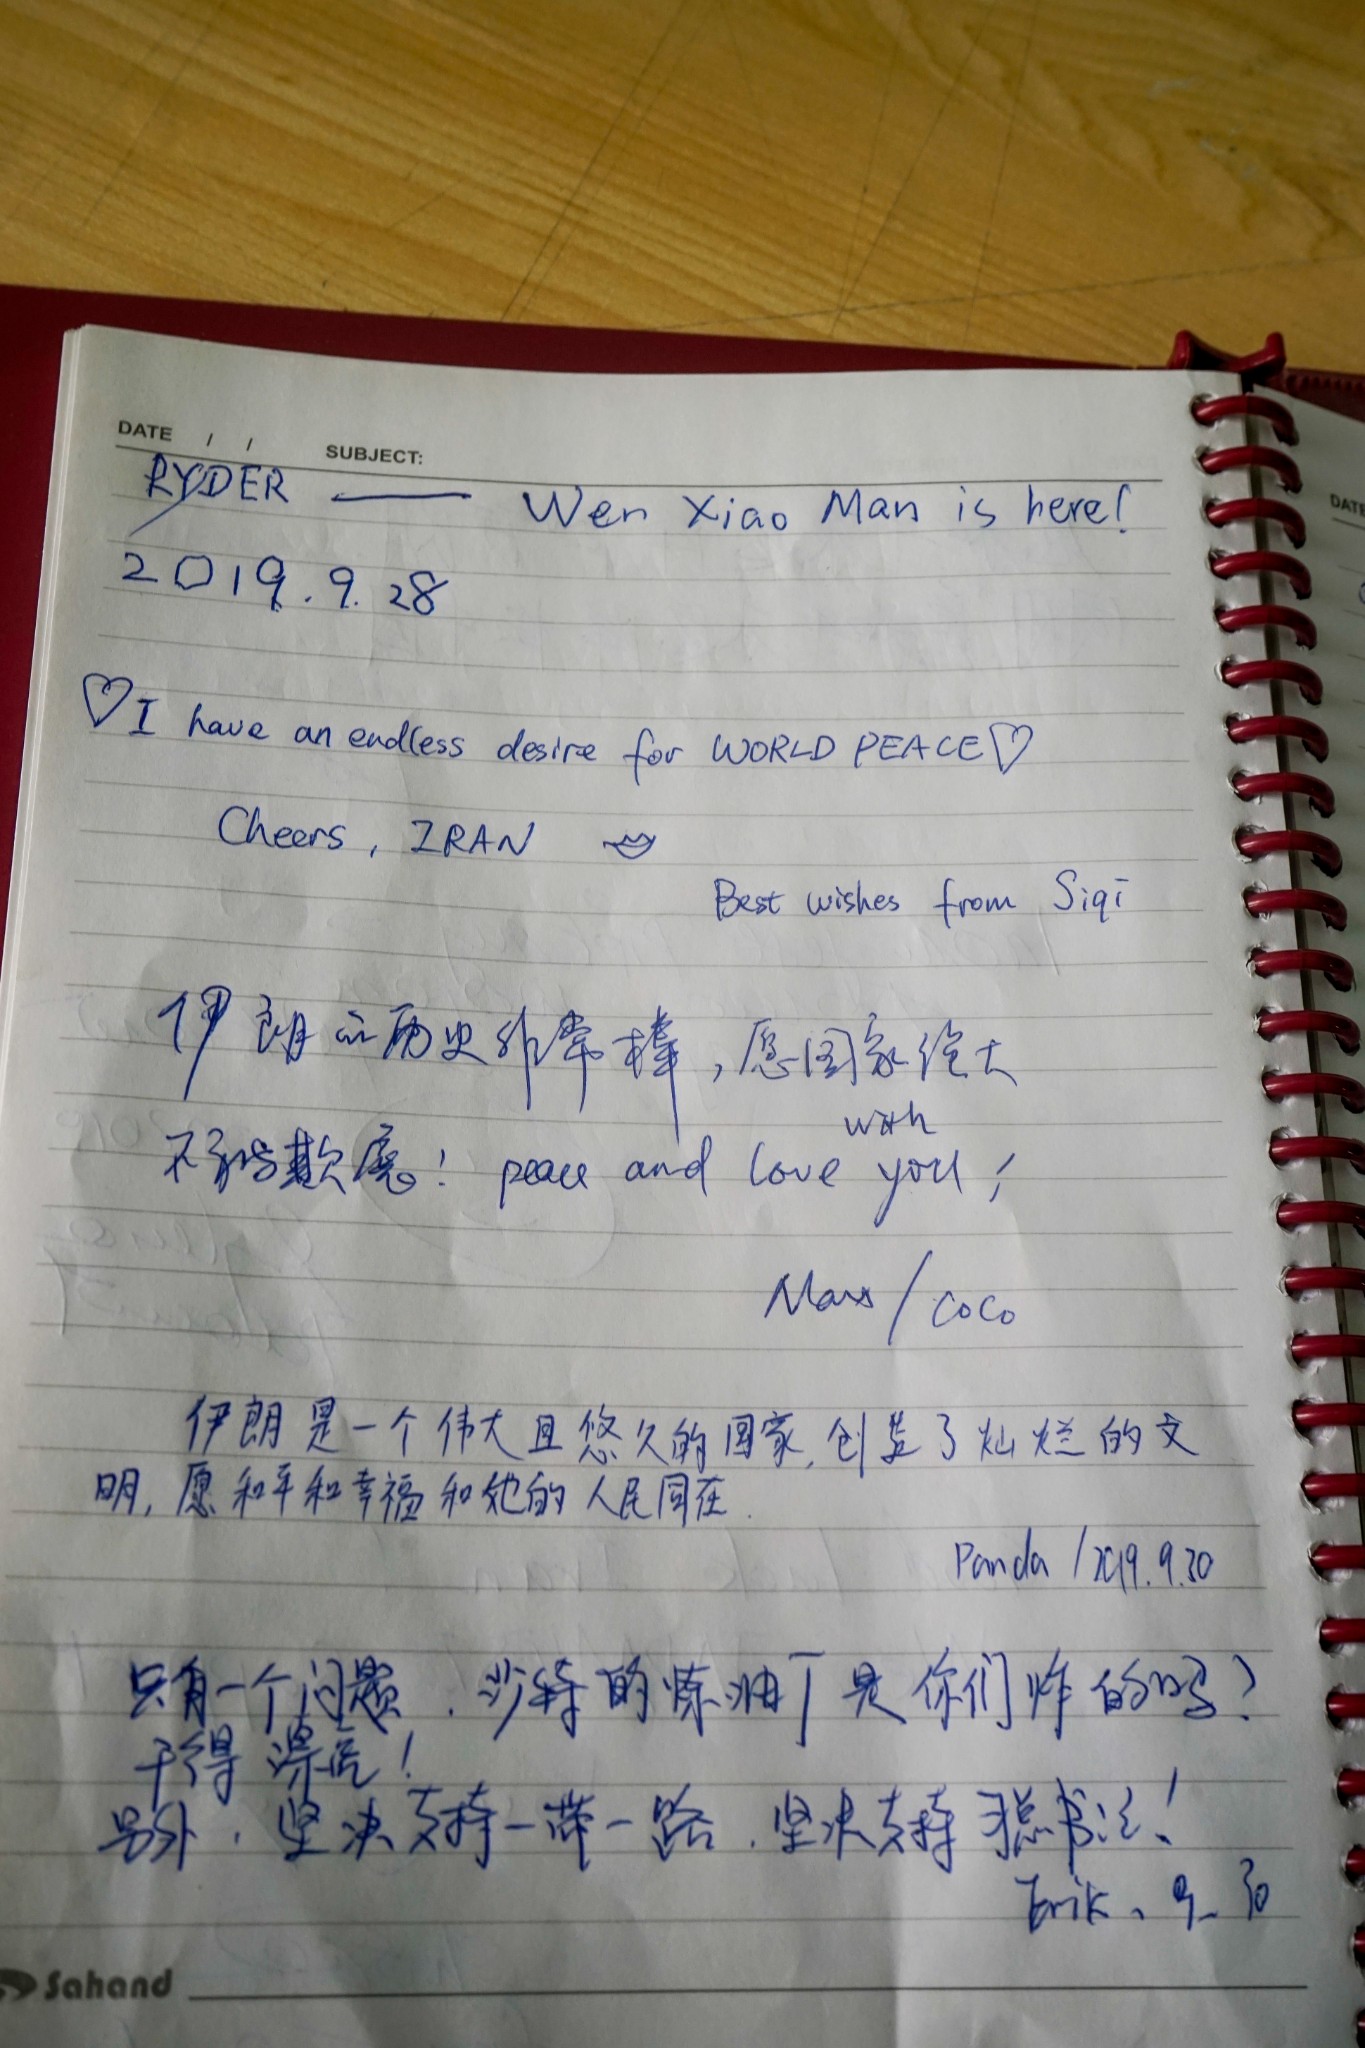 DATE / / SUBJECT:
RYDER —— Wen Xiao Man is here!
2019.9.28
♡I have an endless desire for WORLD PEACE♡
Cheers, IRAN
Best wishes from Siqi
伊朗的历史非常棒,愿国家伟大
with
不 ! peace and love you!
Max/coco
伊朗是一个伟大且悠久的国家,创造了灿烂的文
明,愿和平和幸福和她的人民同在.
Panda/2019.9.30
只有一个问题.沙特的炼油厂是你们炸的吗?
干得漂亮!
另外.坚决支持一带一路.坚决支持习总书记!
Erik. 9.30
Sahand
DATE